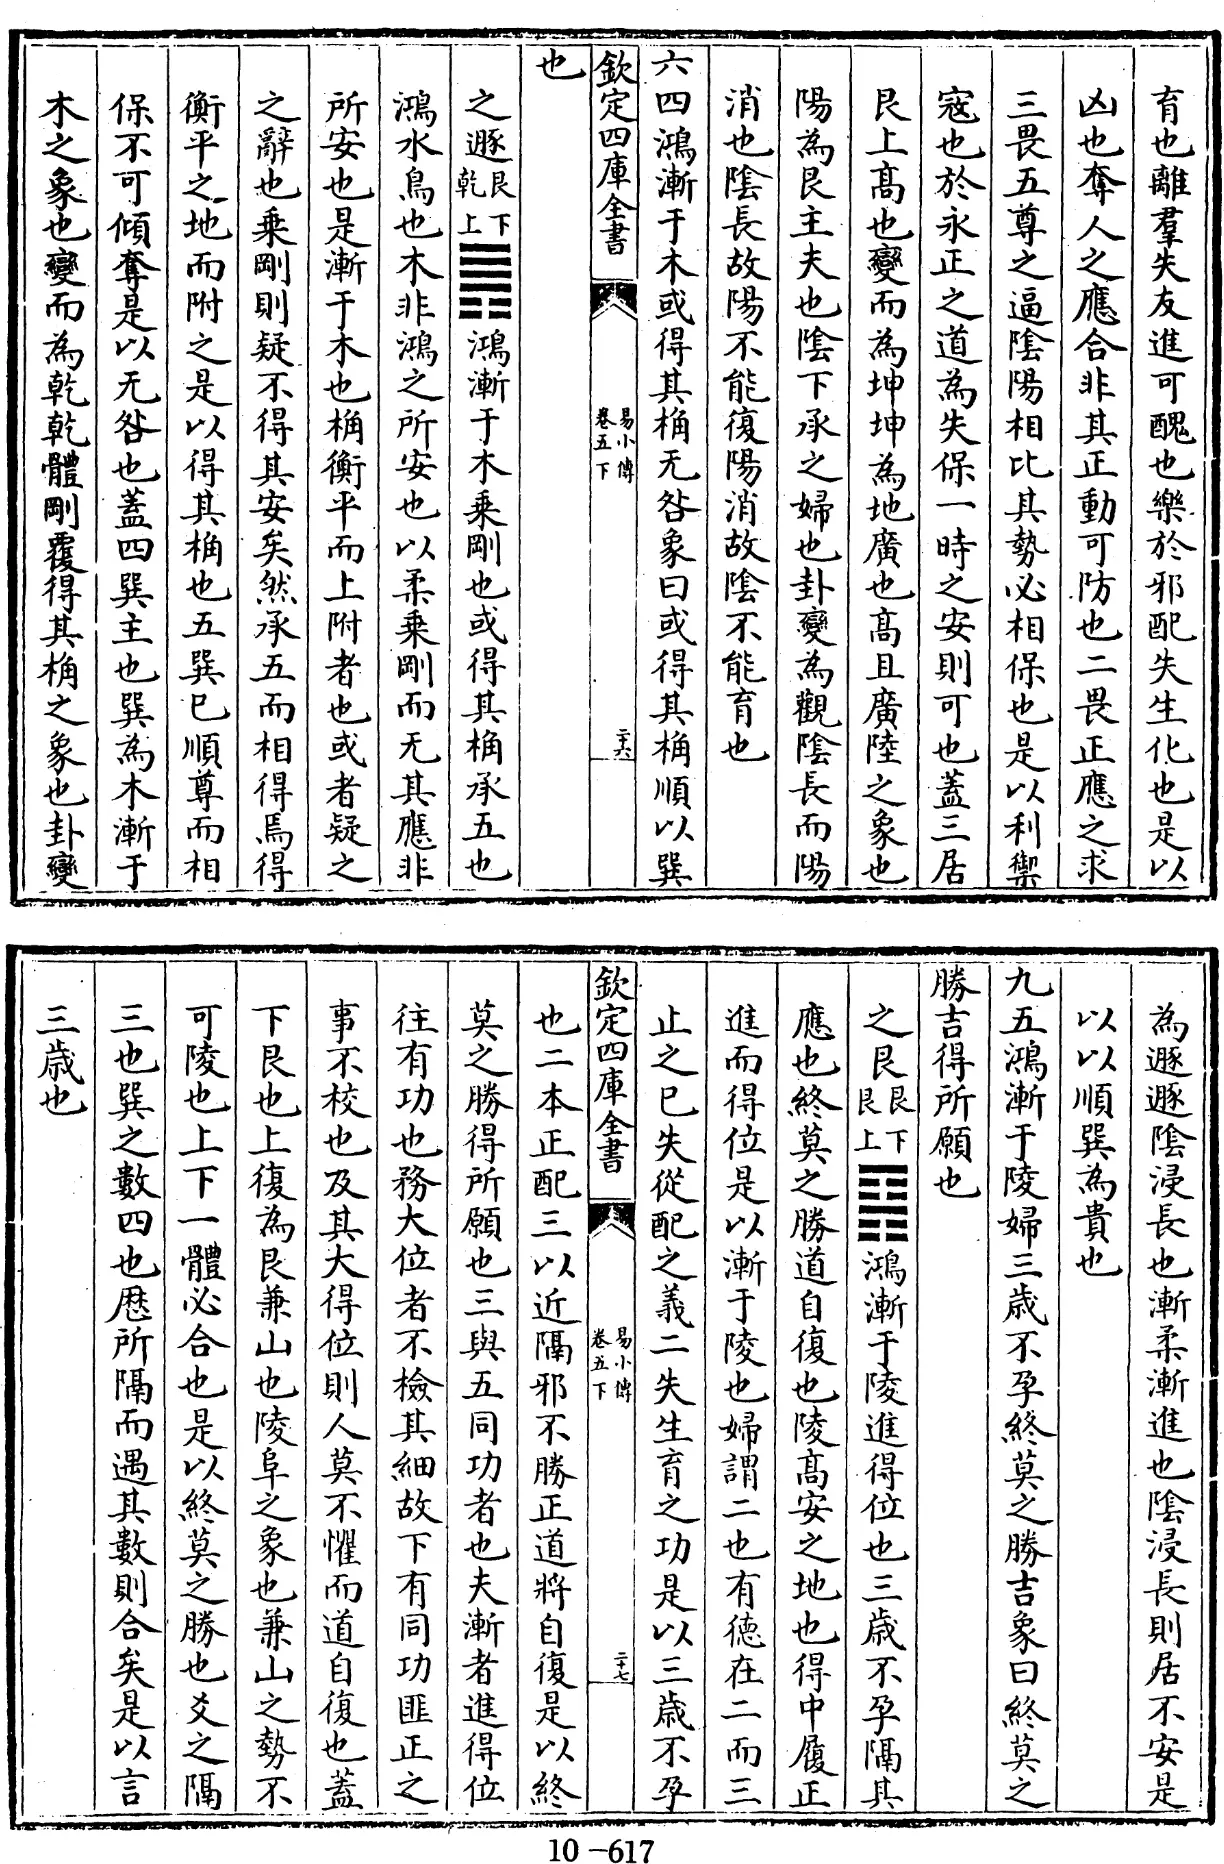 育也離羣失友進可醜也樂於邪配失生化也是以
凶也奪人之應合非其正動可防也二畏正應之求
三畏五尊之逼陰陽相比其勢必相保也是以利禦
寇也於永正之道為失保一時之安則可也蓋三居
艮上髙也變而為坤坤為地廣也髙且廣陸之象也
陽為艮主夫也陰下承之婦也卦變為觀陰長而陽
消也陰長故陽不能復陽消故陰不能育也
六四鴻漸于木或得其桷无咎象曰或得其桷順以巽
欽定四庫全書
易小傳
卷五下
二十六
也
之遯艮下乾上䷠鴻漸于木乗剛也或得其桷承五也
鴻水鳥也木非鴻之所安也以柔乗剛而无其應非
所安也是漸于木也桷衡平而上附者也或者疑之
之辭也乗剛則疑不得其安矣然承五而相得焉得
衡平之地而附之是以得其桷也五巽已順尊而相
保不可傾奪是以无咎也蓋四巽主也巽為木漸于
木之象也變而為乾乾體剛覆得其桷之象也卦變
為遯遯陰浸長也漸柔漸進也陰浸長則居不安是
以以順巽為貴也
九五鴻漸于陵婦三歳不孕終莫之勝吉象曰終莫之
勝吉得所願也
之艮艮下艮上䷳鴻漸于陵進得位也三歳不孕隔其
應也終莫之勝道自復也陵髙安之地也得中履正
進而得位是以漸于陵也婦謂二也有德在二而三
止之已失從配之義二失生育之功是以三歳不孕
欽定四庫全書
易小傳
卷五下
二十七
也二本正配三以近隔邪不勝正道將自復是以終
莫之勝得所願也三與五同功者也夫漸者進得位
往有功也務大位者不檢其細故下有同功匪正之
事不校也及其大得位則人莫不懼而道自復也蓋
下艮也上復為艮兼山也陵阜之象也兼山之勢不
可陵也上下一體必合也是以終莫之勝也爻之隔
三也巽之數四也厯所隔而遇其數則合矣是以言
三歳也
10-617